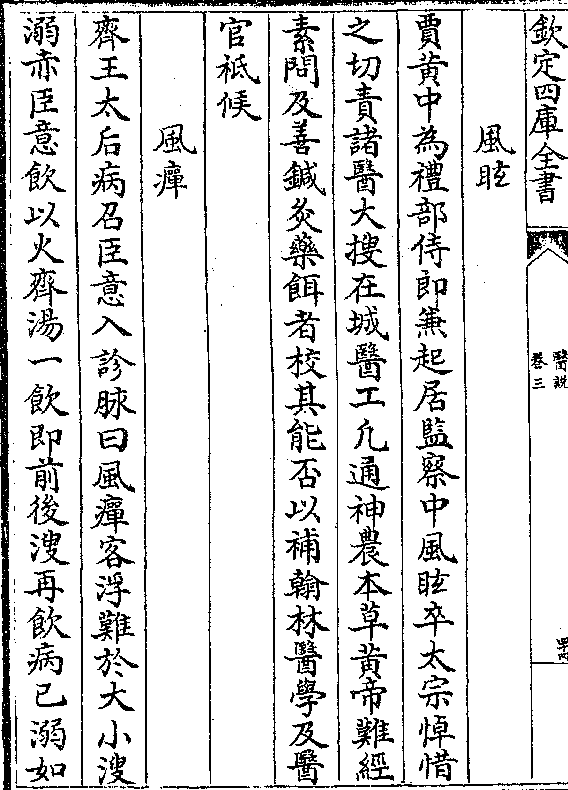 欽定四庫全書
醫說
卷三
風眩
賈黃中為禮部侍郎兼起居監察中風眩卒太宗悼惜
之切責諸醫大搜在城醫工凡通神農本草黃帝難經
素問及善鍼灸藥餌者校其能否以補翰林醫學及醫
官祇候
風癉
齊王太后病召臣意入診脉曰風癉客浮難於大小溲
溺赤臣意飲以火齊湯一飲即前後溲再飲病已溺如